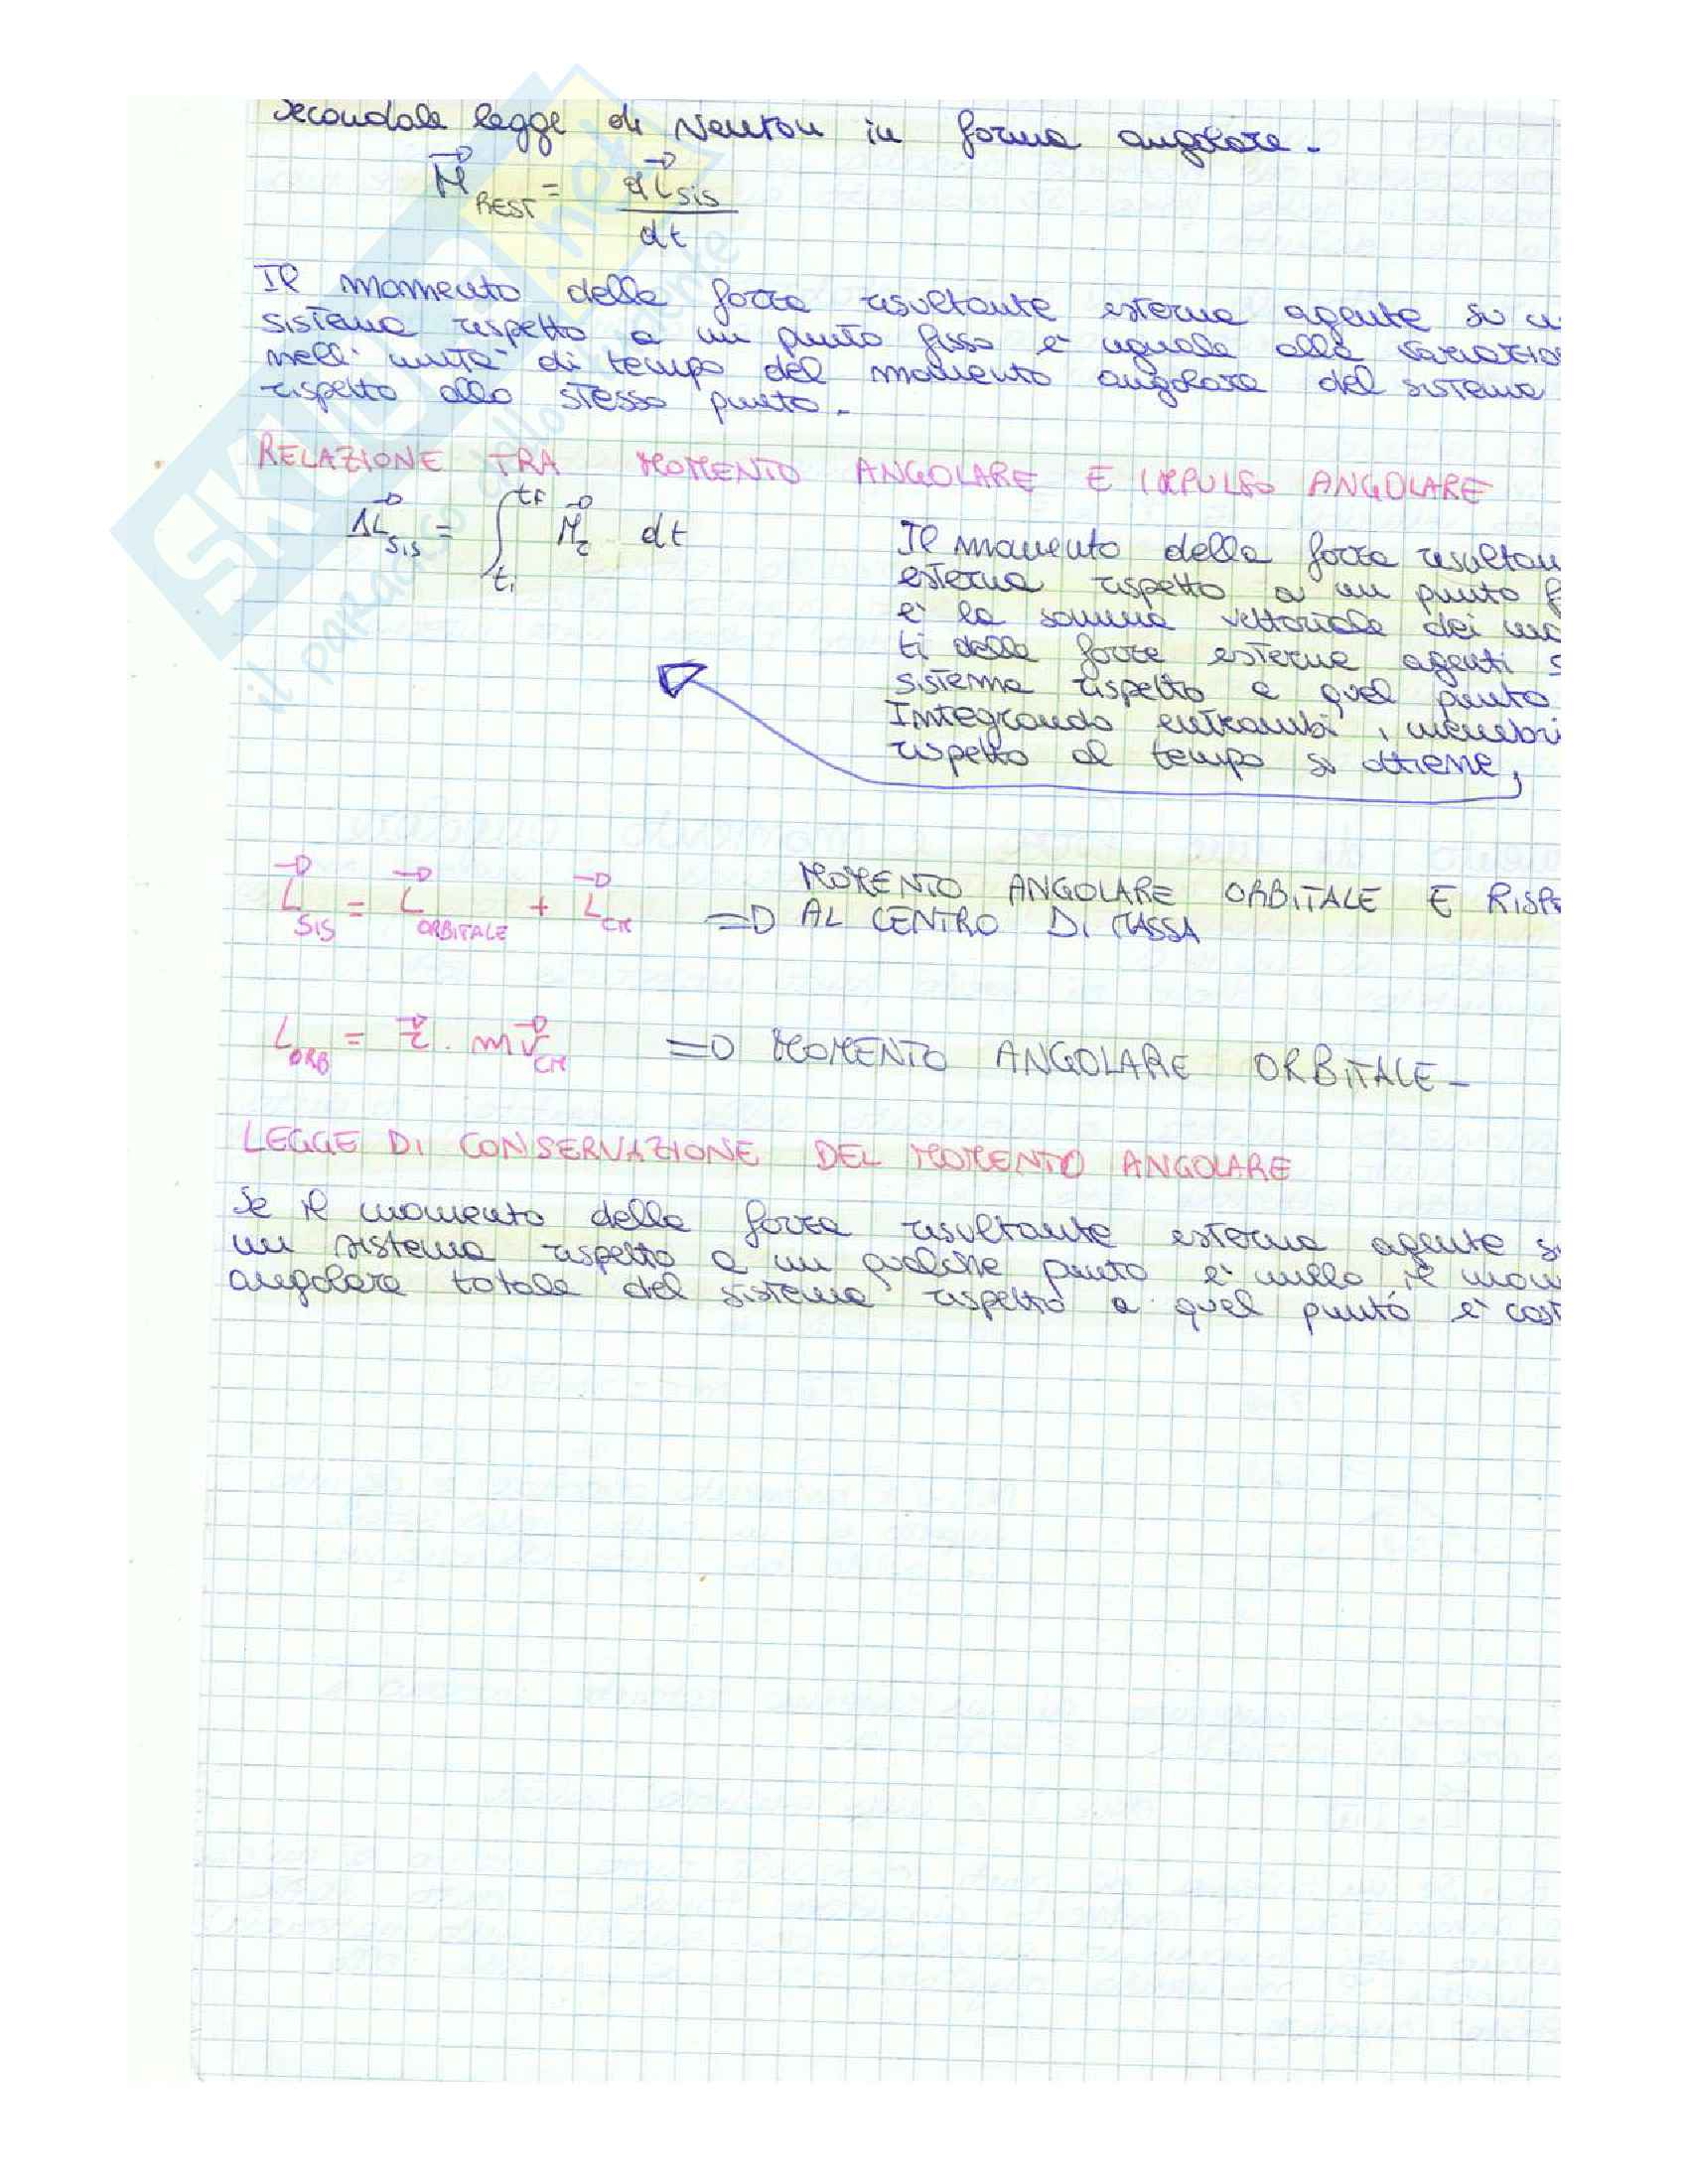 Seconda legge di Newton in forma angolare.
M⃗ REST = dL⃗ sis / dt
Il momento della forza risultante esterna agente su u
sistema rispetto a un punto fisso è uguale alla variazio
nell'unità di tempo del momento angolare del sistema
rispetto allo stesso punto.
RELAZIONE TRA MOMENTO ANGOLARE E IMPULSO ANGOLARE
ΔL⃗ SIS = ∫ ti tf M⃗ r dt
Il momento della forza risultan
esterna rispetto a un punto f
è la somma vettoriale dei mo
ti delle forze esterne agenti s
sistema rispetto a quel punto
Integrando entrambi i membri
rispetto al tempo si ottiene,
L⃗ SIS = L⃗ ORBITALE + L⃗ CM => MOMENTO ANGOLARE ORBITALE E RISPE
AL CENTRO DI MASSA
L ORB = r⃗ · m v⃗ CM => MOMENTO ANGOLARE ORBITALE-
LEGGE DI CONSERVAZIONE DEL MOMENTO ANGOLARE
Se il momento della forza risultante esterna agente s
un sistema rispetto a un qualche punto è nullo il mom
angolare totale del sistema rispetto a quel punto è cost
SKUOLA.net
il paradiso dello studente